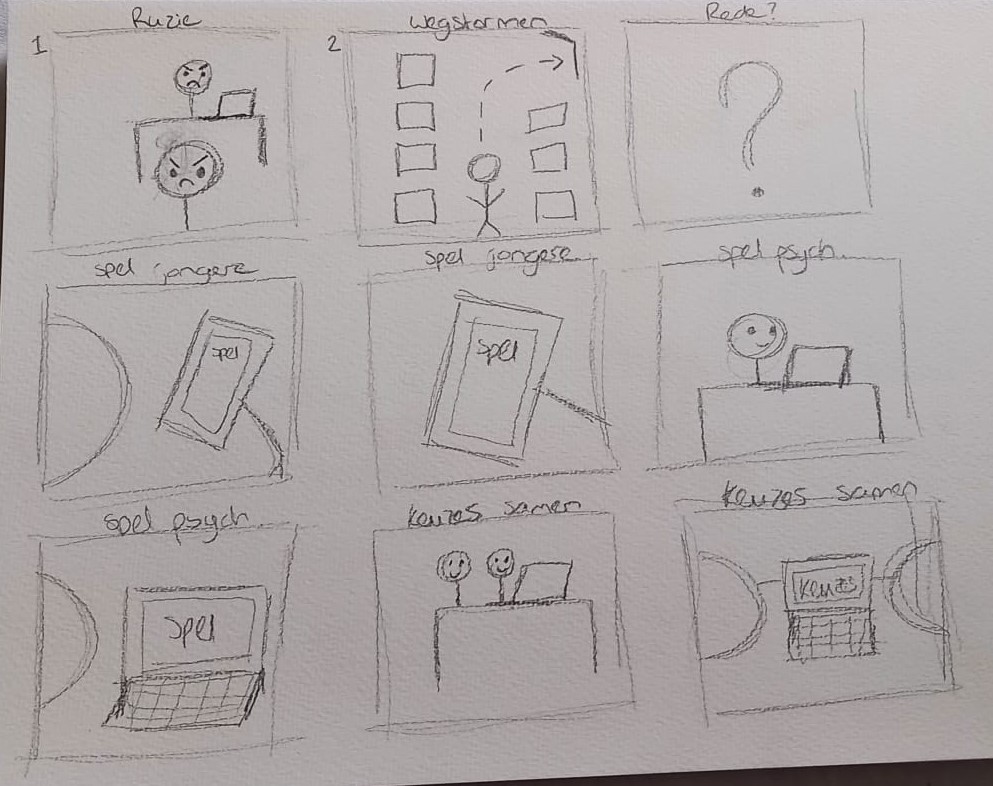 Ruzie
1
wegstormen
2
Rede?
spel jongere
spel
spel jongere
spel
spel psych.
spel psych.
spel
keuzes samen
keuzes samen
keuzes